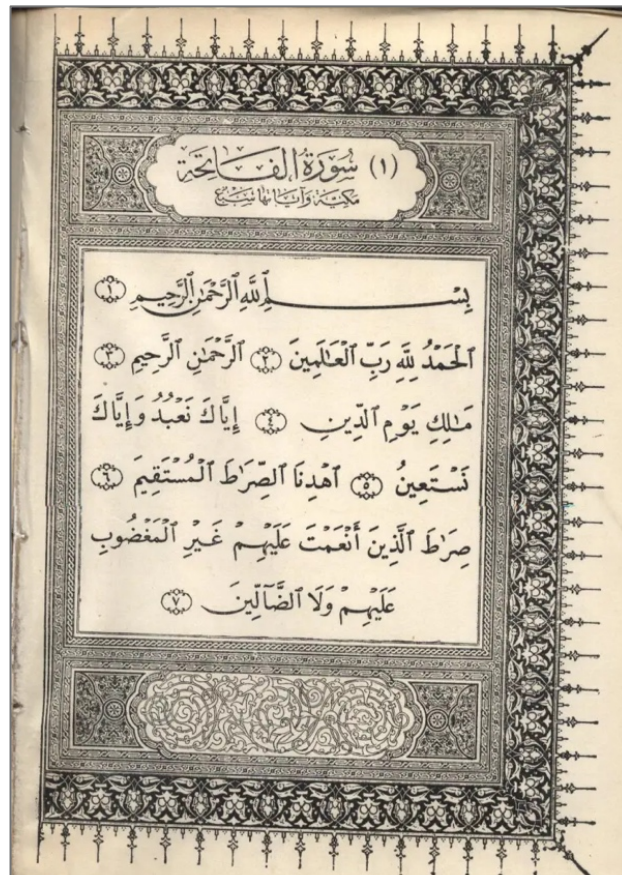 (١) سُورَةُ الفَاتِحَة
مَكِيَّة وَآيَاتُهَا سَبْع
بِسْمِ ٱللَّهِ ٱلرَّحْمَٰنِ ٱلرَّحِيمِ ١
ٱلْحَمْدُ لِلَّهِ رَبِّ ٱلْعَٰلَمِينَ ٢ ٱلرَّحْمَٰنِ ٱلرَّحِيمِ ٣
مَٰلِكِ يَوْمِ ٱلدِّينِ ٤ إِيَّاكَ نَعْبُدُ وَإِيَّاكَ
نَسْتَعِينُ ٥ ٱهْدِنَا ٱلصِّرَٰطَ ٱلْمُسْتَقِيمَ ٦
صِرَٰطَ ٱلَّذِينَ أَنْعَمْتَ عَلَيْهِمْ غَيْرِ ٱلْمَغْضُوبِ
عَلَيْهِمْ وَلَا ٱلضَّآلِّينَ ٧